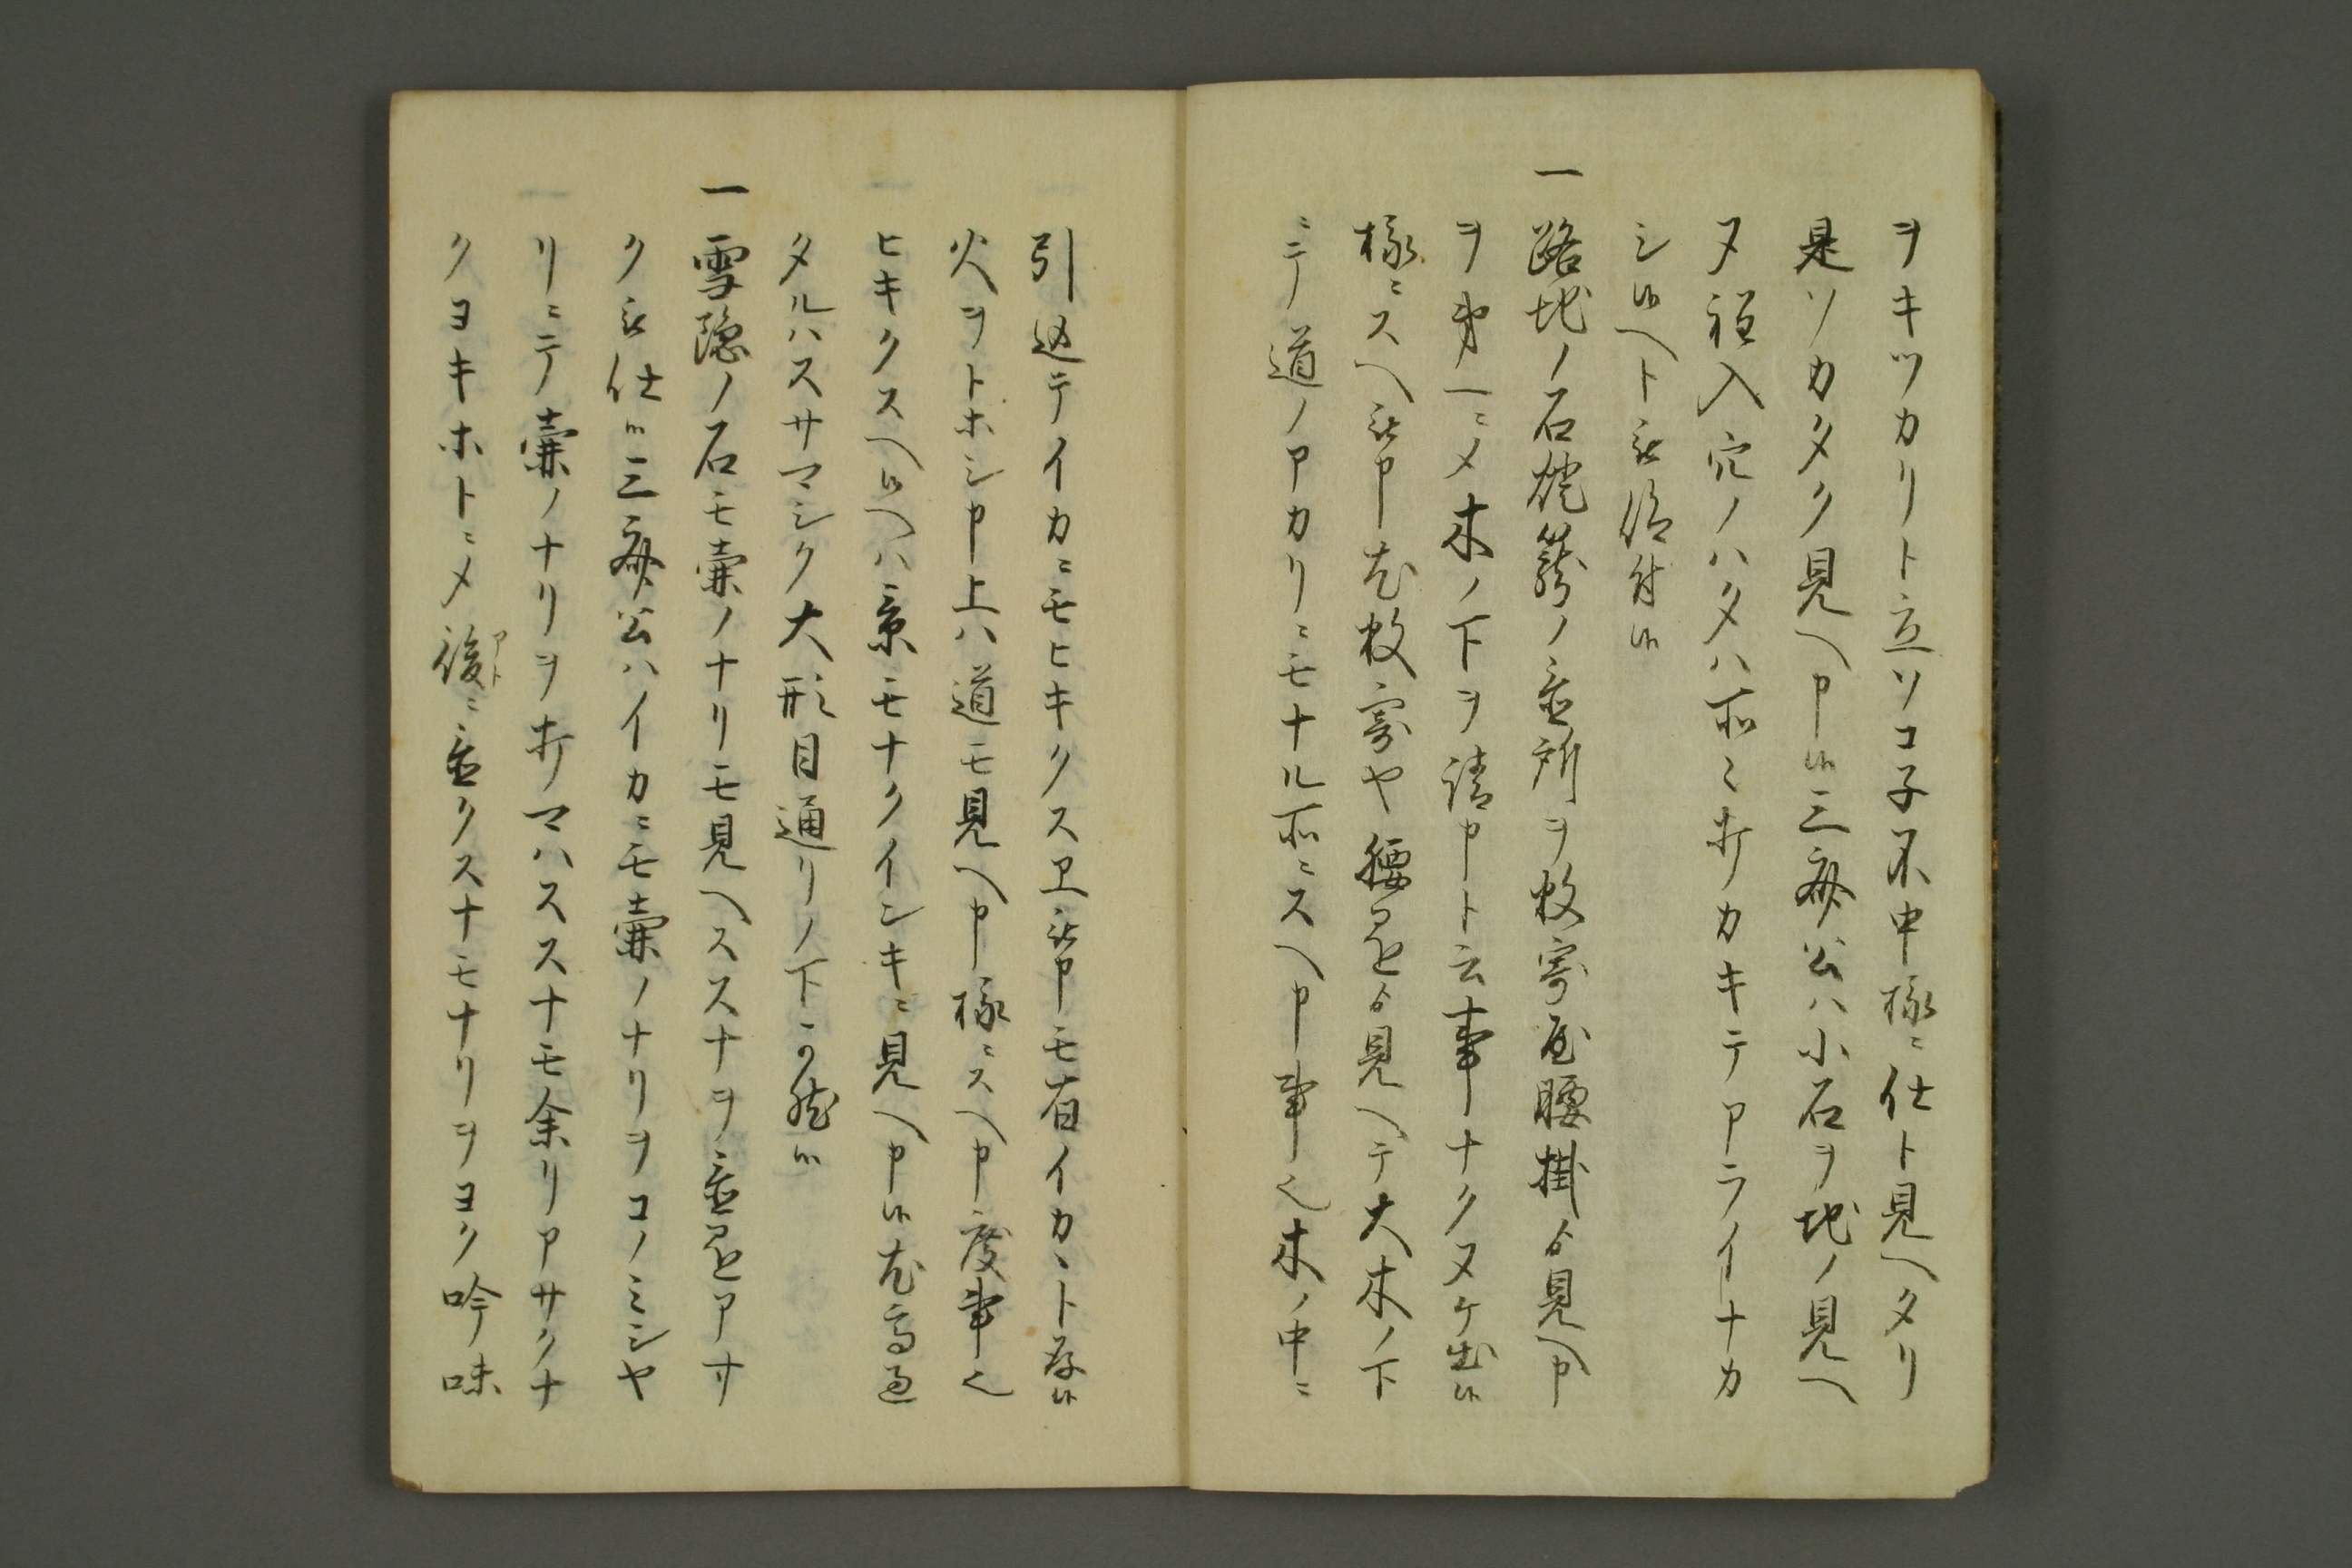 ヲキツカリト立ソコ子不申様ニ仕ト見ヘタリ
是ソカタク見ヘ申候三斎公ハ小石ヲ地ノ見ヘ
ヌ程入穴ノハタハ所々打カキテアライナカ
シ候ヘト被仰付候
一路地ノ石燈籠ノ置所ヲ数寄屋腰掛ゟ見ヘ申
ヲ第一ニメ木ノ下ヲ請申ト云事ナクヌケ出候
様ニスヘ被申尤数寄や腰懸ゟ見ヘテ大木ノ下
ニテ道ノアカリニモナル所ニスヘ申事也木ノ中ニ
引込テイカニモヒキクスヱ被申モ有イカヽト存候
火ヲトホシ申上ハ道モ見ヘ申様ニスヘ申度事也
ヒキクスヘ候ヘハ景モナクイシキニ見ヘ申候尤高過
タルハスサマシク大形目通リノ下ニ可然候
一雪隠ノ石モ壷ノナリモ見ヘススナヲ置懸アサ
ク被仕候三斎公ハイカニモ壷ノナリヲコノミシヤ
リニテ壷ノナリヲ打マハススナモ余リアサクナ
クヨキホトニメ後アトニ置クスナモナリヲヨク吟味